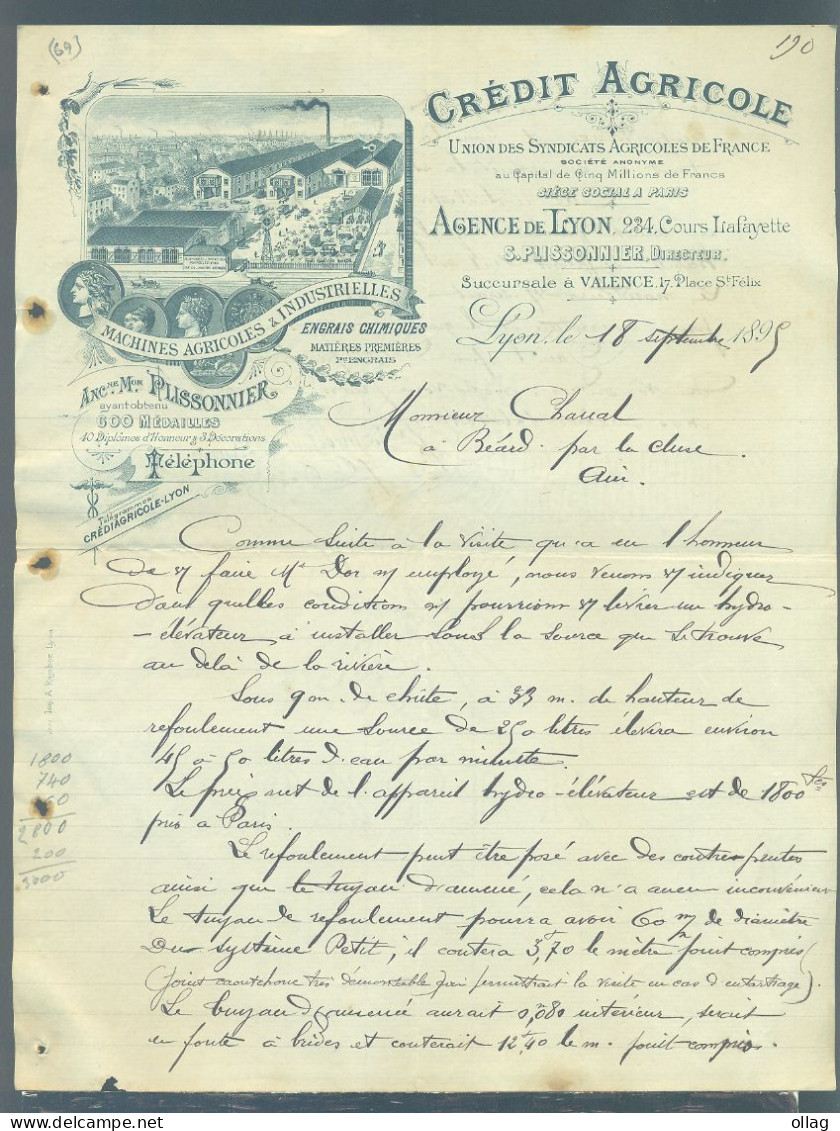 (69)
190
CRÉDIT AGRICOLE
UNION DES SYNDICATS AGRICOLES DE FRANCE
SOCIÉTÉ ANONYME
au Capital de Cinq Millions de Francs
SIÈGE SOCIAL A PARIS
AGENCE DE LYON, 234, Cours Lafayette
S. PLISSONNIER, DIRECTEUR.
Succursale à VALENCE, 17, Place St Félix
MACHINES AGRICOLES & INDUSTRIELLES
ENGRAIS CHIMIQUES
MATIÈRES PREMIÈRES
Pr ENGRAIS
ANCNE MON PLISSONNIER
ayant obtenu
600 MÉDAILLES
40 Diplômes d'Honneur & 3 Décorations
Téléphone
Télégrammes
CRÉDIAGRICOLE-LYON
Lyon, le 18 septembre 1895
Monsieur Charral
à Béard par la Cluse
Ain.
Comme suite à la visite qu'a eu l'honneur
de vs faire Mr Dor ns employé, nous venons vs indiquer
dans quelles conditions ns pourrions vs livrer un hydro-
-élévateur à installer sous la source que se trouve
au delà de la rivière.
Sous 9m de chûte, à 33 m. de hauteur de
refoulement une source de 250 litres élèvera environ
45 à 50 litres d'eau par minute.
Le prix net de l'appareil hydro-élévateur est de 1800 frs
pris à Paris.
Le refoulement peut être posé avec des contre-pentes
ainsi que le tuyau d'amené, cela n'a aucun inconvénient
Le tuyau de refoulement pourra avoir 60 m/m de diamètre
Du système Petit, il coutera 3f,70 le mètre joint compris
(joint caoutchouc très démontable qui permettrait la visite en cas d'entartrage).
Le tuyau d'amené aurait 0,m080 intérieur, serait
en fonte à brides et couterait 12f,40 le m. joint compris.
1800
740
60
2800
200
3000
ollag